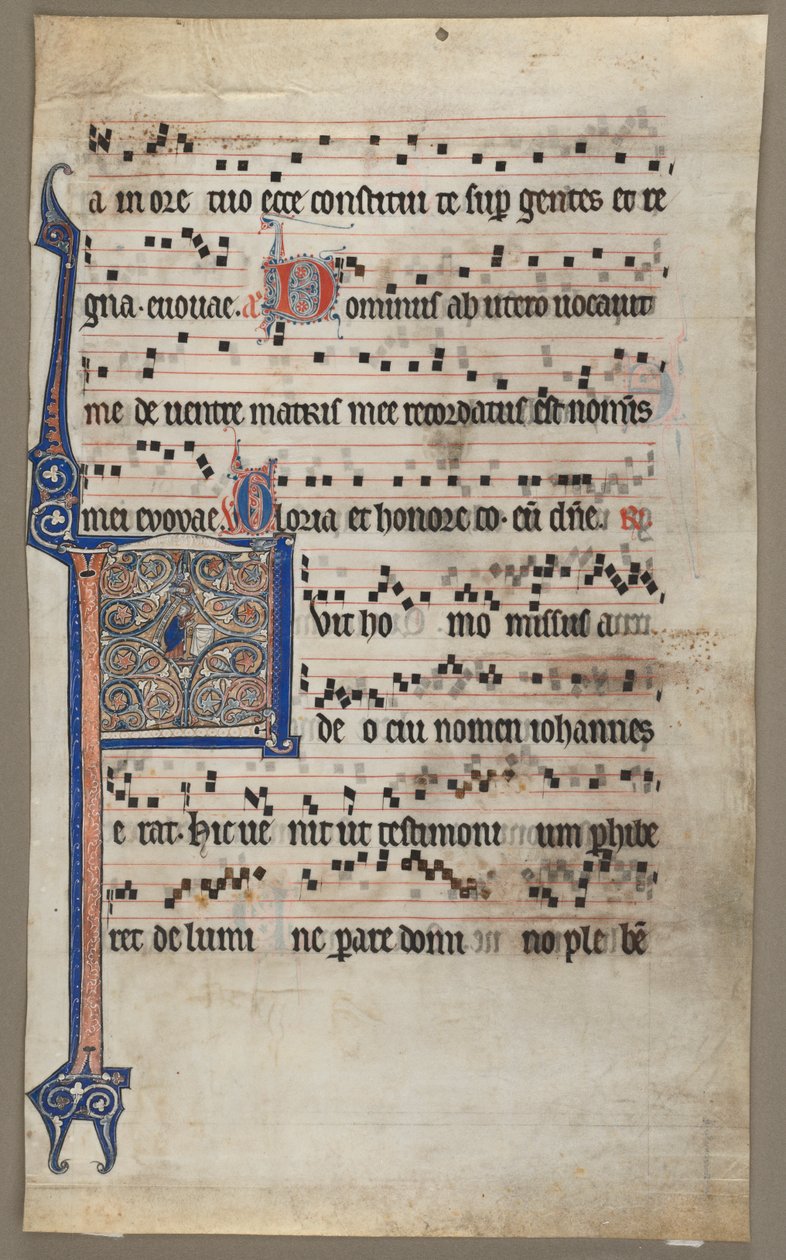 a in ore tuo ecce constitui te sup gentes et re
gna · euouae. a Dominus ab utero uocauit
me de uentre matris mee recordatus est nomis
mei evovae. V Gloria et honore co · eū dn̄e. R.
Vit ho mo missus a
de o cui nomen iohannes
e rat · hic ue nit ut testimoni um phibe
ret de lumi ne parare domi no ple bē